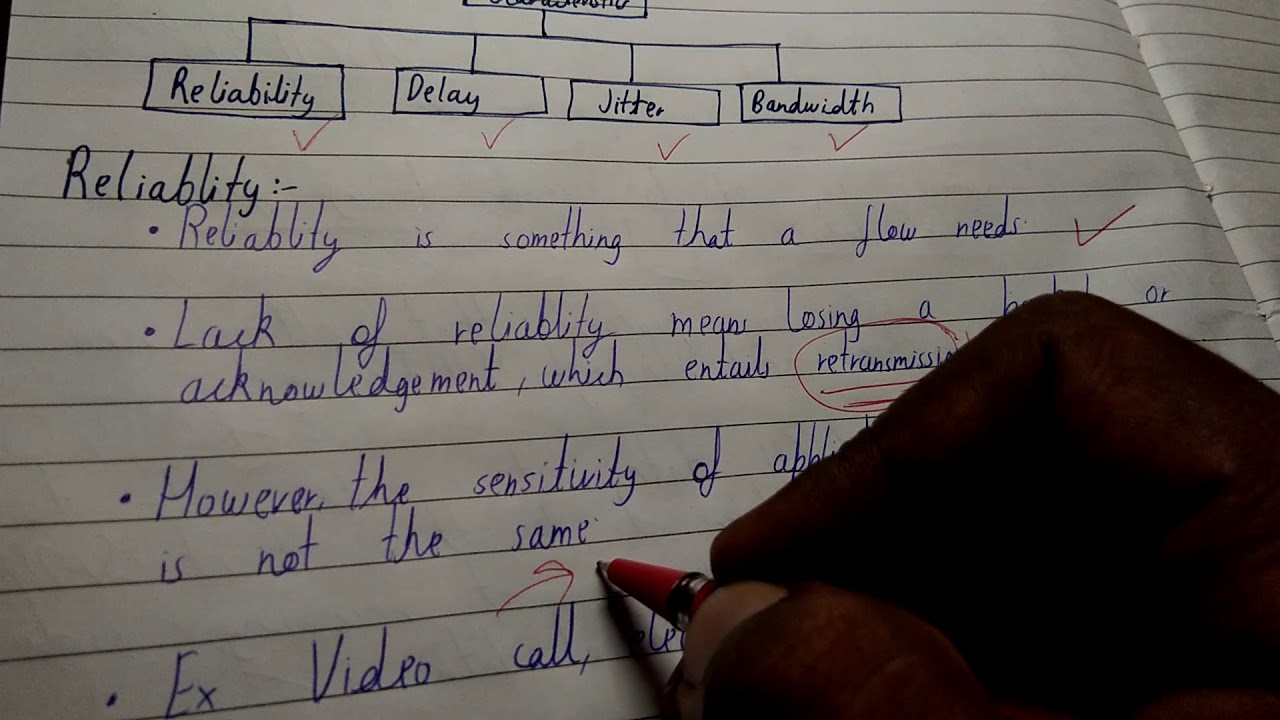 Reliability Delay Jitter Bandwidth
Reliablity:-
• Reliablity is something that a flow needs.
• Lack of reliablity means losing a or
acknowledgement, which entails
• However, the sensitivity of
is not the same
• Ex Video call,